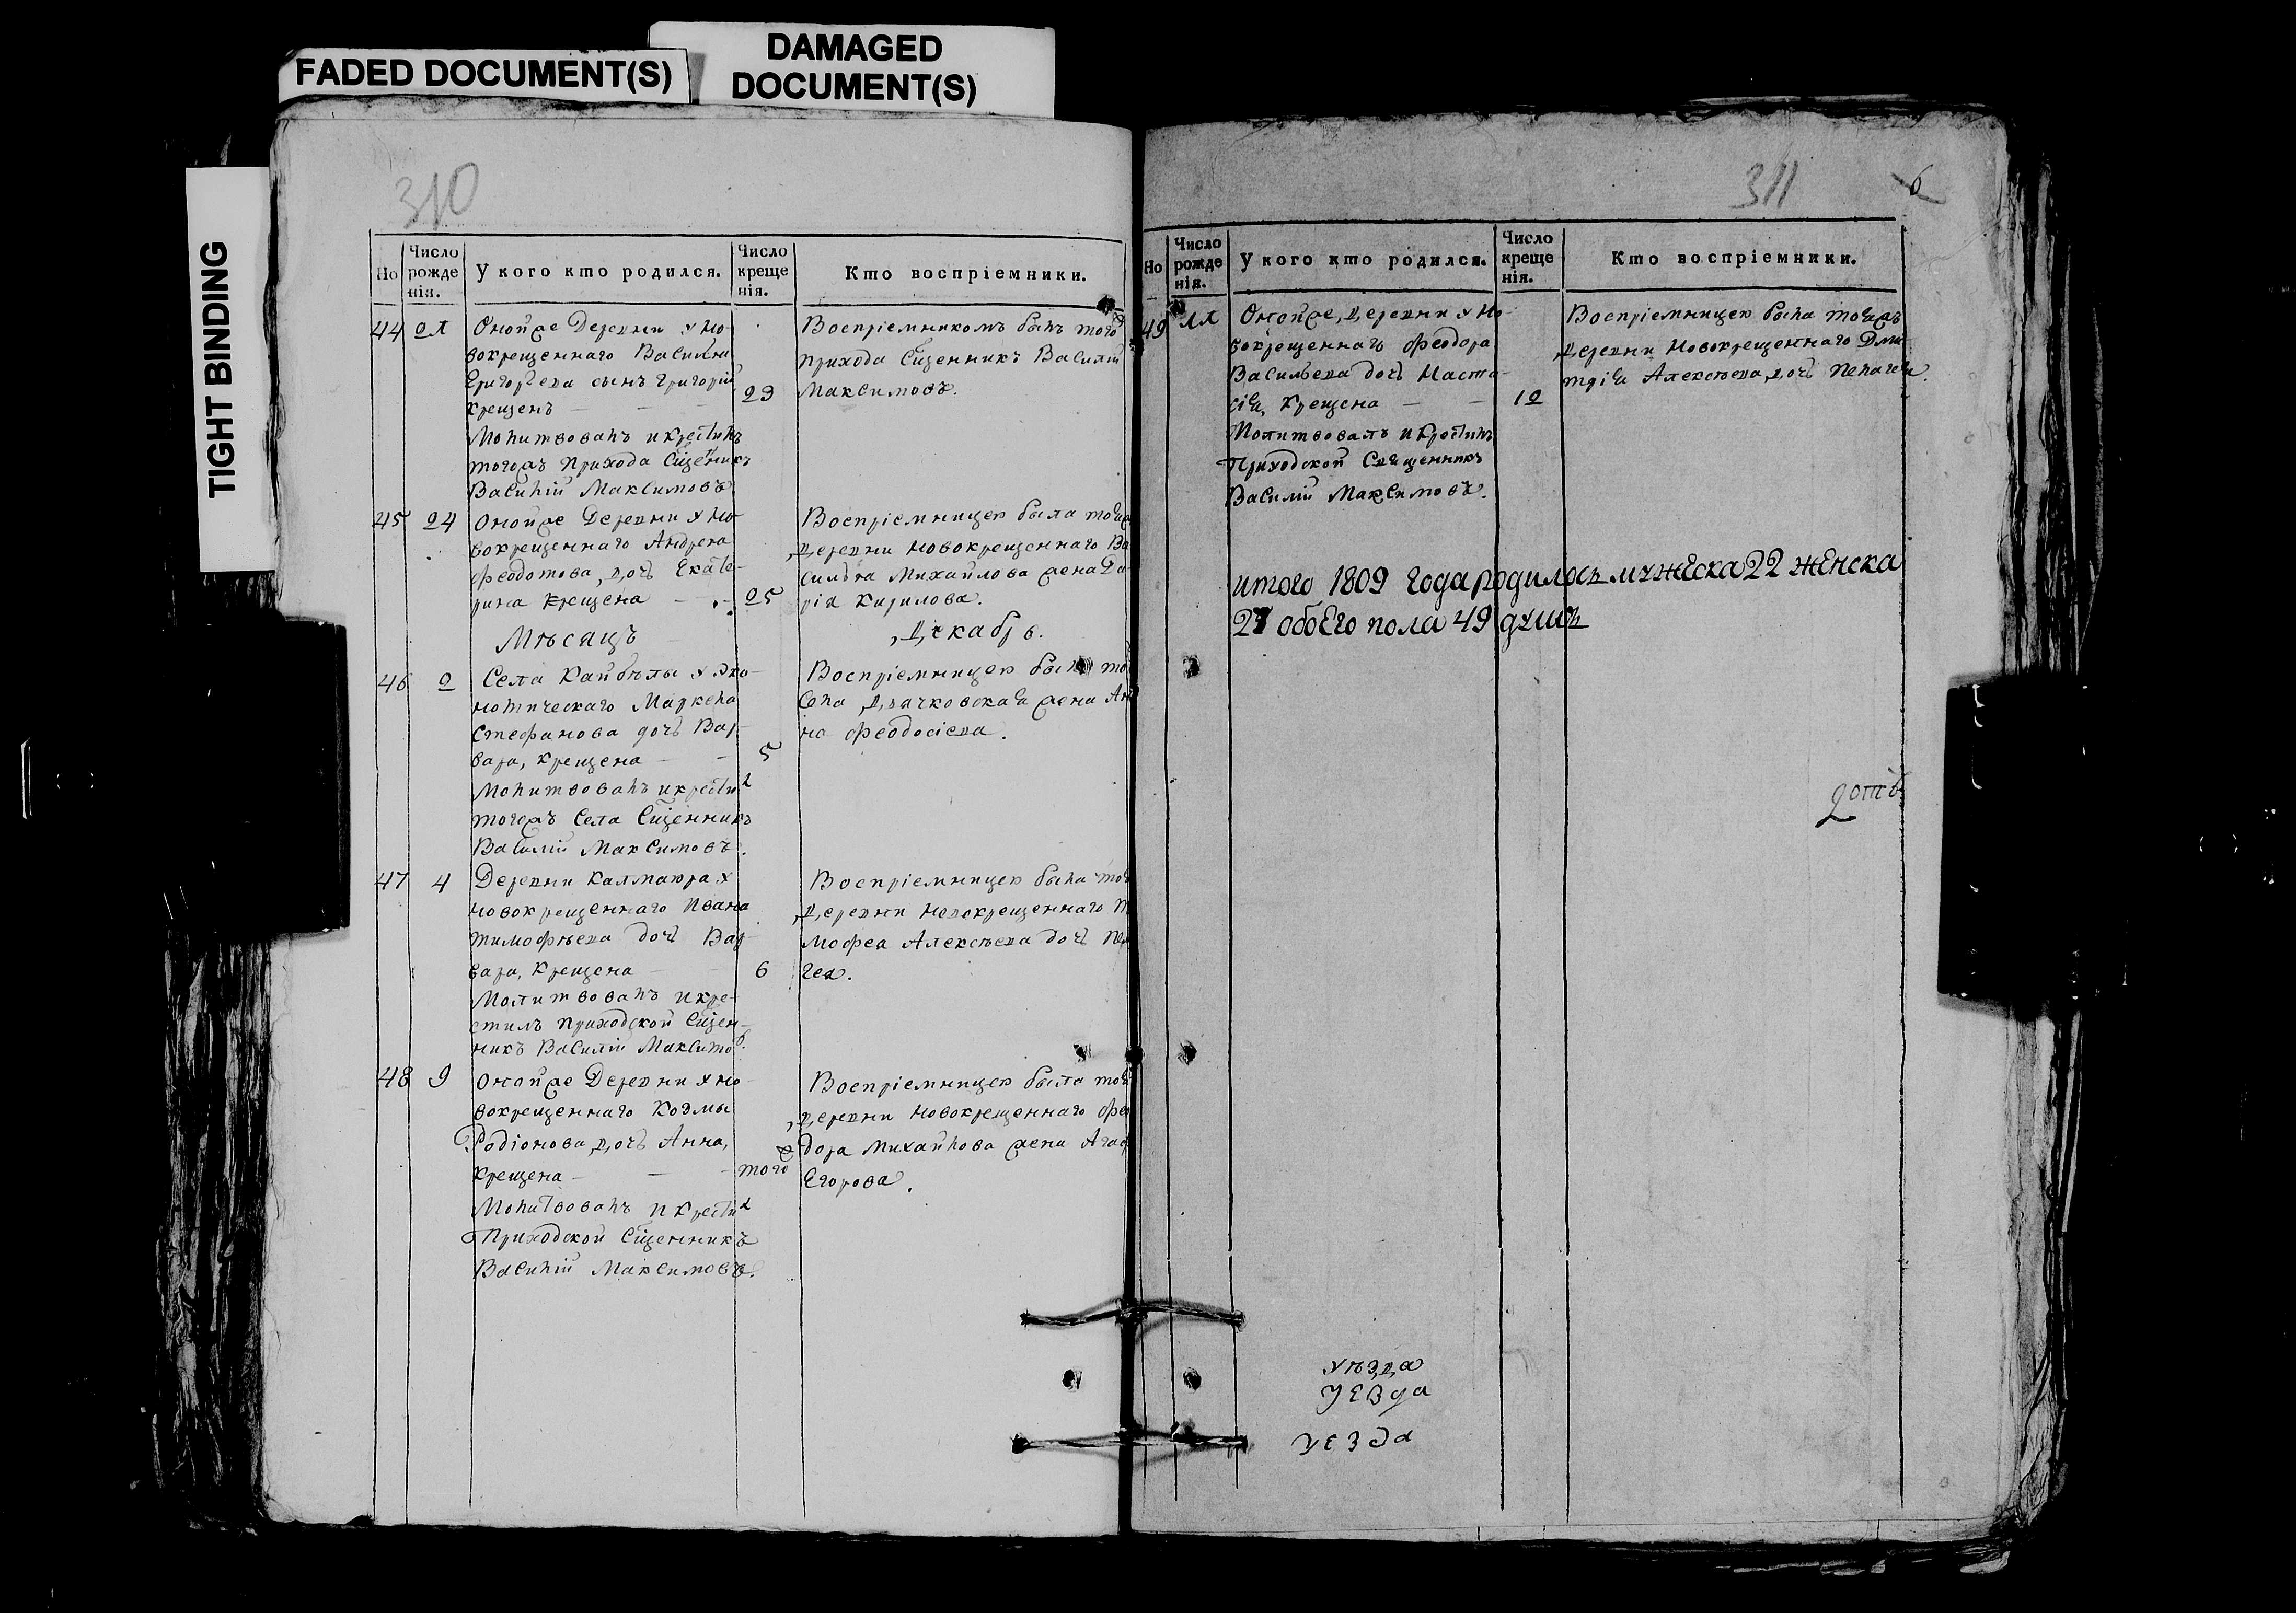 FADED DOCUMENT(S)
DAMAGED
DOCUMENT(S)
TIGHT BINDING
310
Но
Число рожде нія.
У кого кто родился.
Число креще нія.
Кто воспріемники.
44
21
Онойже Деревни у но-
вокрещеннаго Василья
Григорьева сынъ Григорій
крещенъ
23
Молитвовалъ и крестилъ
тогожъ Прихода Сщенникъ
Василій Максимовъ
Воспріемникомъ былъ тогож
прихода Сщенникъ Василій
Максимовъ.
45
24
Онойже Деревни у но-
вокрещеннаго Андрея
Феодотова дочь Екате-
рина крещена
25
Воспріемницею была тояж
Деревни новокрещеннаго Ва
сильја Михайлова жена Да-
рія Кирилова.
Мѣсяцъ
Декабрь.
46
2
Села Кайбѣлы у эко-
номическаго Маркела
Стефанова дочь Вар-
вара, крещена
5
Молитвовалъ и крестил
тогожъ Села Сщенникъ
Василій Максимовъ.
Воспріемницею была то
Села Дьячковская жена Ан
на Феодосіева.
47
4
Деревни Калмаюра у
новокрещеннаго Ивана
Тимофѣева дочь Вар-
вара, крещена
6
Молитвовалъ и кре-
стилъ приходской Сщен-
никъ Василій Максимов.
Воспріемницею была тоя
Деревни Новокрещеннаго Ти
мофеа Алексѣева дочь Пела
гея.
48
9
Онойже Деревни у но-
вокрещеннаго Козмы
Родіонова, дочь Анна,
крещена
тогож
Молитвовалъ и крестил
Приходской Сщенникъ
Василій Максимовъ.
Воспріемницею была тояж
Деревни новокрещеннаго Фео
дора Михайлова жена Агаф
Егорова.
311
6
Но
Число рожде нія.
У кого кто родился.
Число креще нія.
Кто воспріемники.
49
11
Онойже, Деревни у но-
вокрещеннаго Феодора
Васильева дочь Наста-
сія, крещена
12
Молитвовалъ и крестилъ
Приходской Священникъ
Василій Максимовъ.
Воспріемницею была тояжъ
Деревни Новокрещеннаго Дми-
трія Алексѣева, дочь Пелагея.
итого 1809 года родилось мужеска 22 женска
27 обоего пола 49 душъ
уѣзда
уезда
уезда